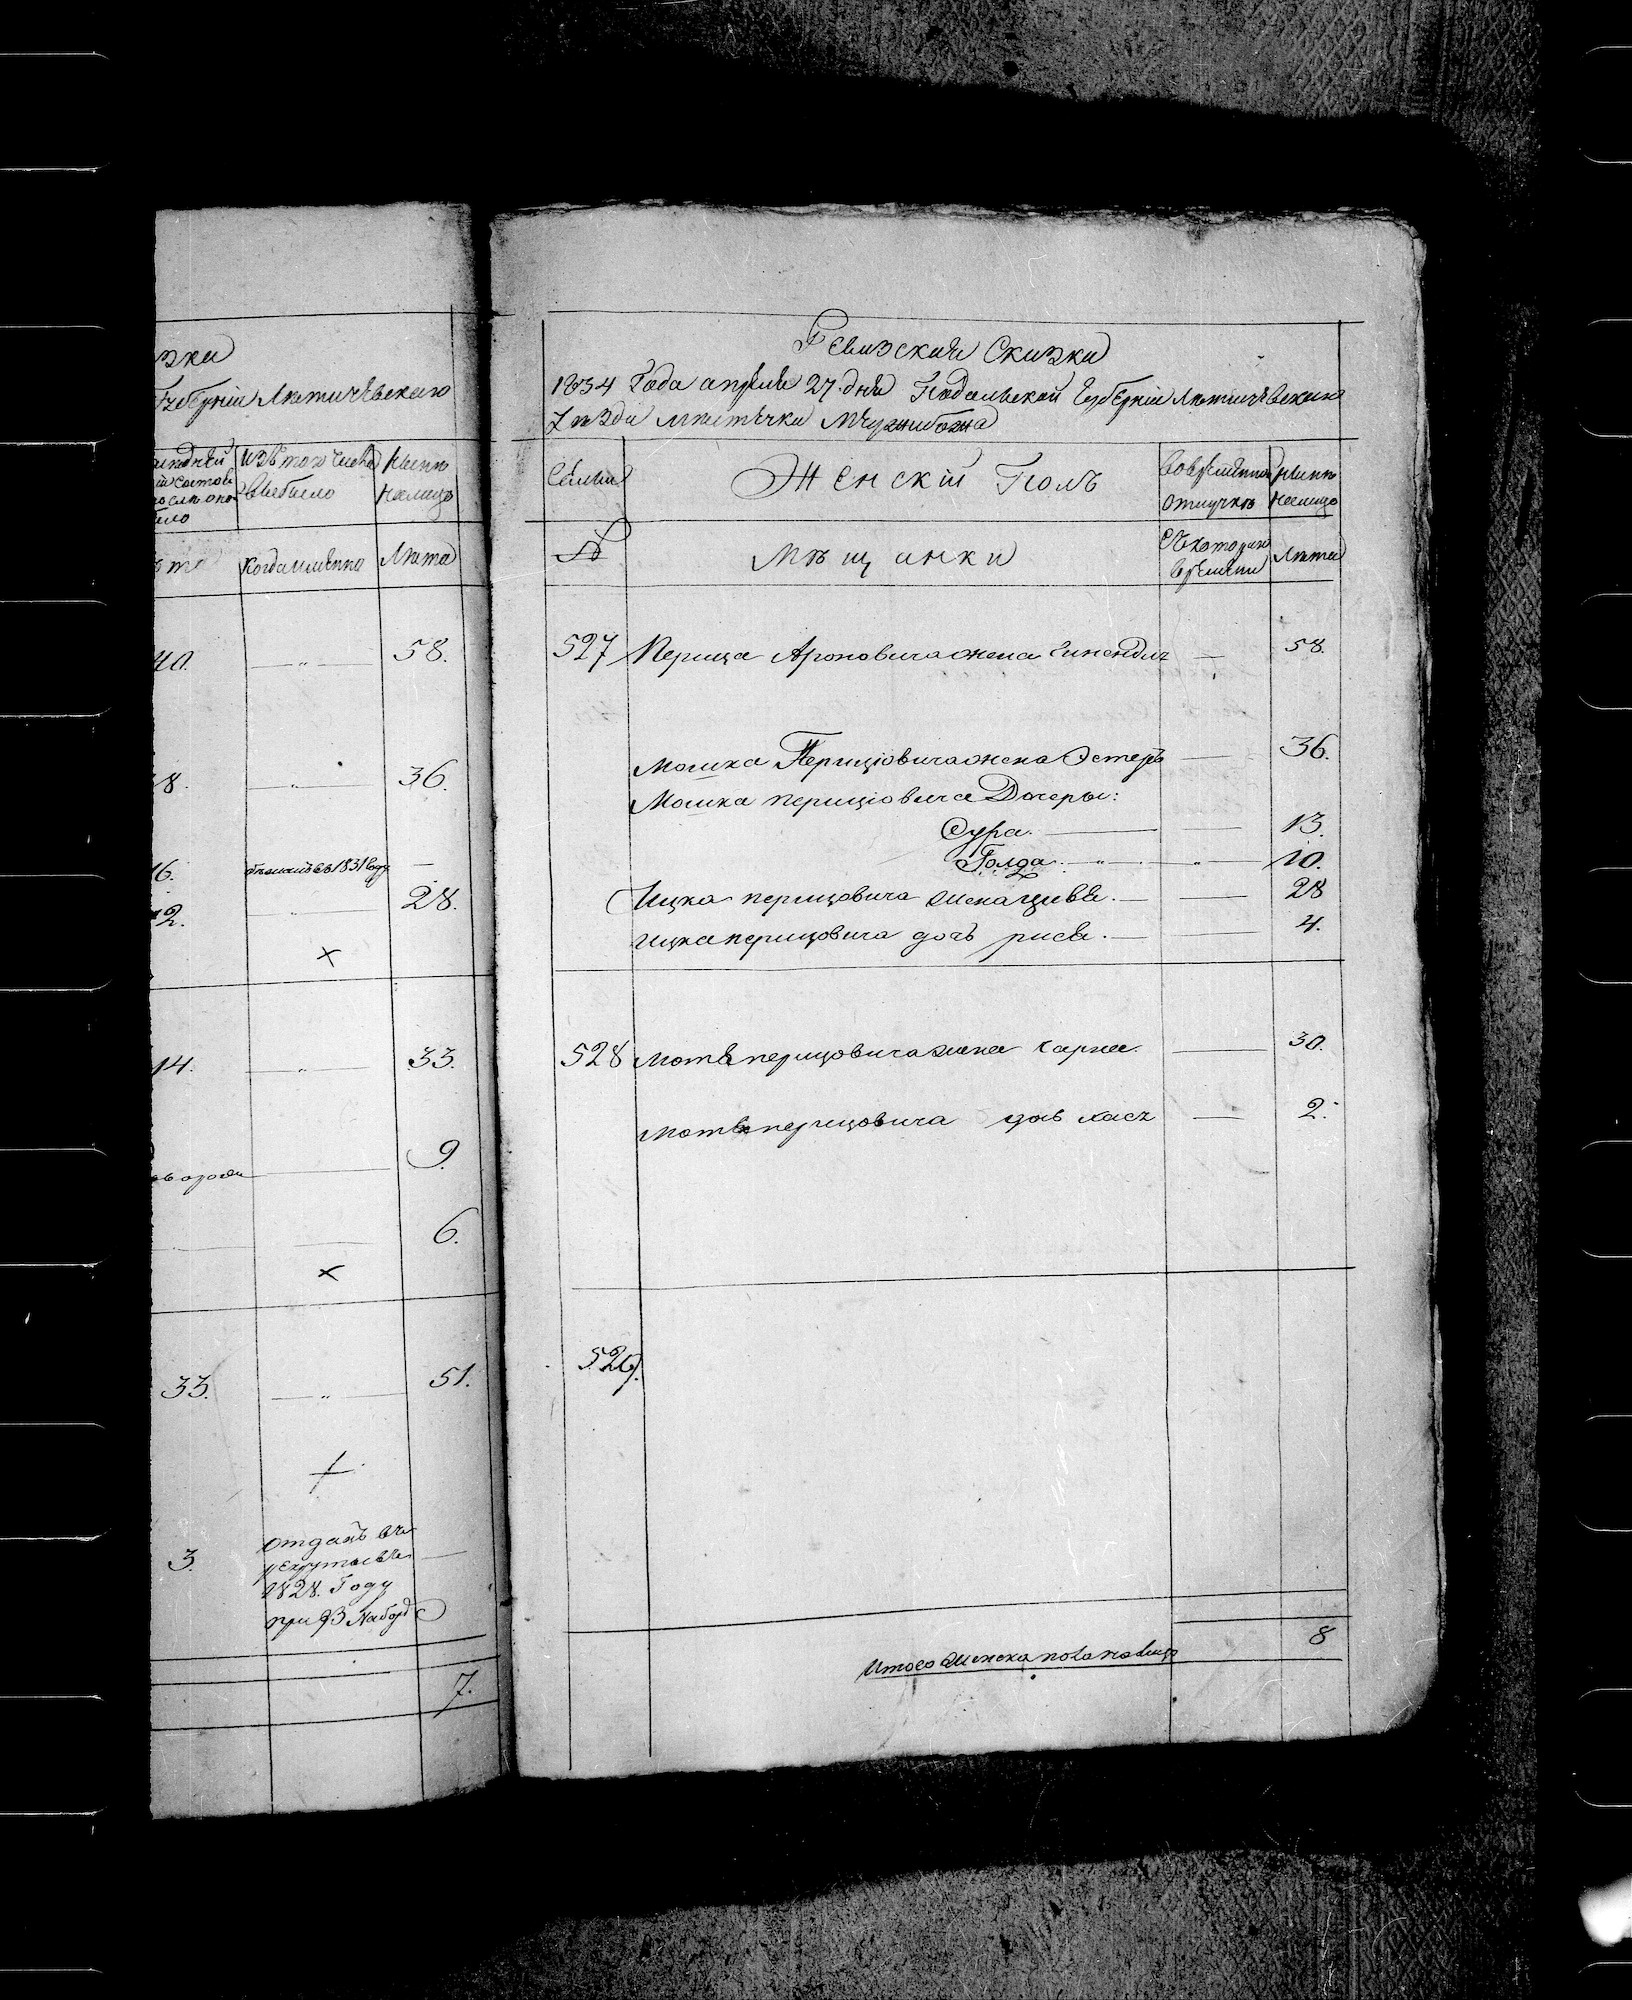 зка
Губерніи Летичевскаго
изъ того числа
выбыло
Ныне
налицо
когда именно
Лета
40.
58.
8.
36.
16.
въ 1831 году
—
12.
28.
×
14.
33.
9.
6.
×
33.
51.
3.
отданъ въ
рекруты въ
1828. Году
при 93 Наборе
7.
Ревизская Сказка
1834 Года апреля 27. дня Подольской Губерніи Летичевскаго
уезда местечка Меджибожа
Семьи
Женскій Полъ
Во временной
отлучке
Ныне
налицо
№
Мещанки
Съ котораго
времени
Лета
527 Перица Ароновича жена — 58.
Мошка Перицiовича жена Эстеръ — 36.
Мошка перицiовича Дочеры:
Сура. — 13.
Голда. — „ — 10.
Ицка перицовича жена — 28
Ицка перицовича дочь — 4.
528 Мотя перицовича жена — 30.
Мотя перицовича дочь хася — 2.
529.
Итого женска пола налицо 8